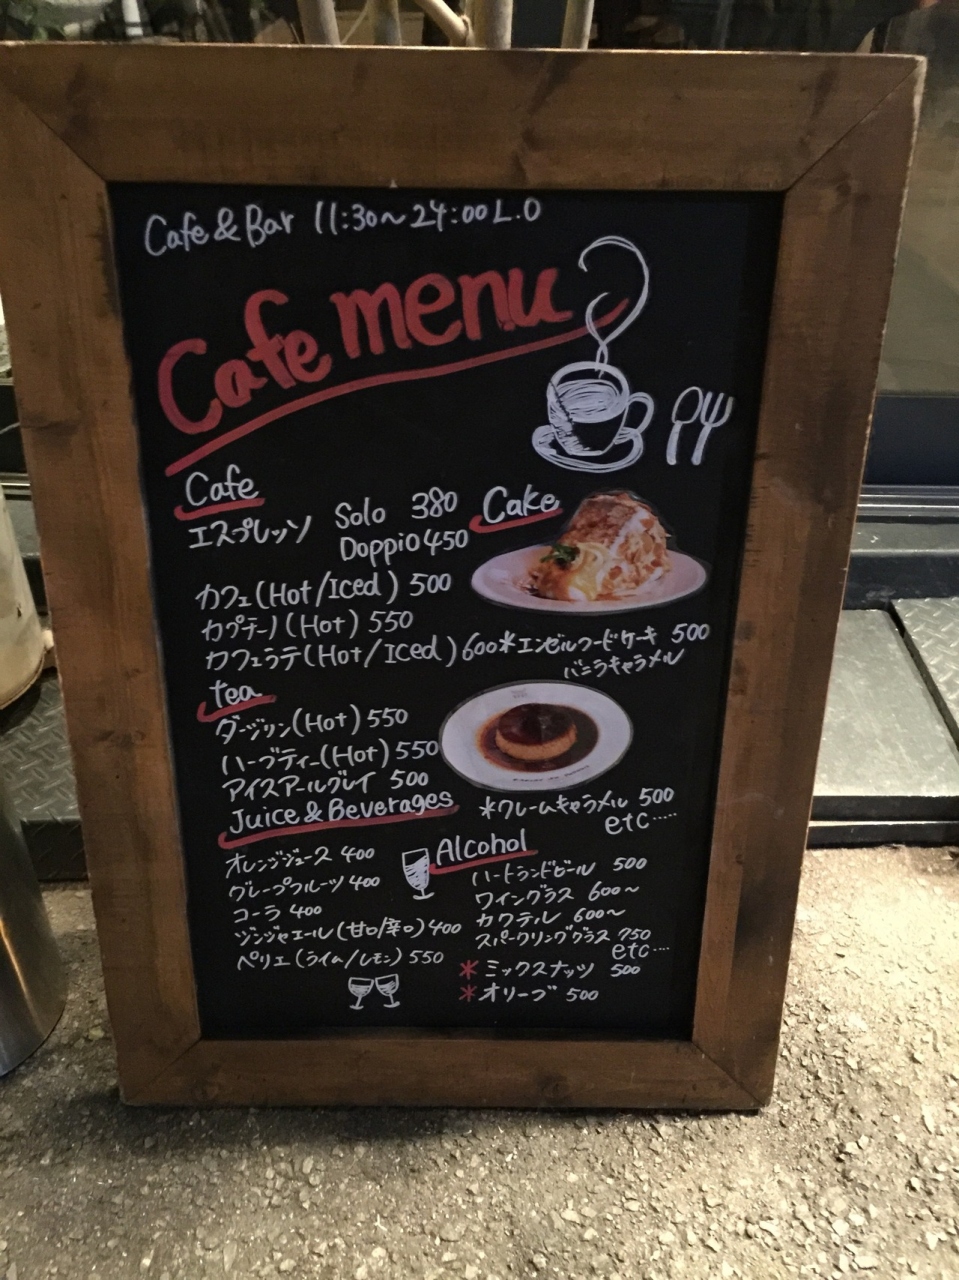 Cafe & Bar 11:30～24:00 L.O
Cafe menu
Cafe
エスプレッソ Solo 380
Doppio 450
カフェ(Hot/Iced) 500
カプチーノ(Hot) 550
カフェラテ(Hot/Iced) 600
tea
ダージリン(Hot) 550
ハーブティー(Hot) 550
アイスアールグレイ 500
Juice & Beverages
オレンジジュース 400
グレープフルーツ 400
コーラ 400
ジンジャエール(甘口/辛口) 400
ペリエ(ライム/レモン) 550
Cake
*エンゼルフードケーキ 500
バニラキャラメル
*クレームキャラメル 500
etc.....
Alcohol
ハートランドビール 500
ワイングラス 600～
カクテル 600～
スパークリンググラス 750
etc....
*ミックスナッツ 500
*オリーブ 500